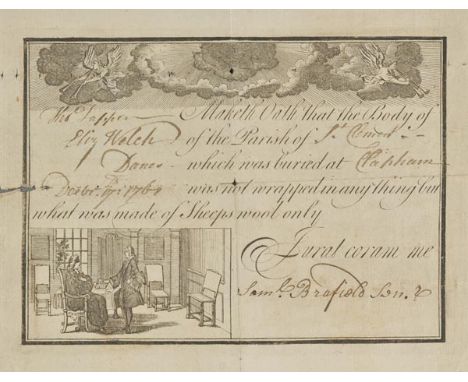 Tho.s Tapper Maketh Oath that the Body of
Eliz Welch of the Parish of St Clement
Danes which was buried at Clapham
1769 was not wrapped in any thing but
what was made of Sheeps wool only
Jurat coram me
Saml. Brafield Sen.r